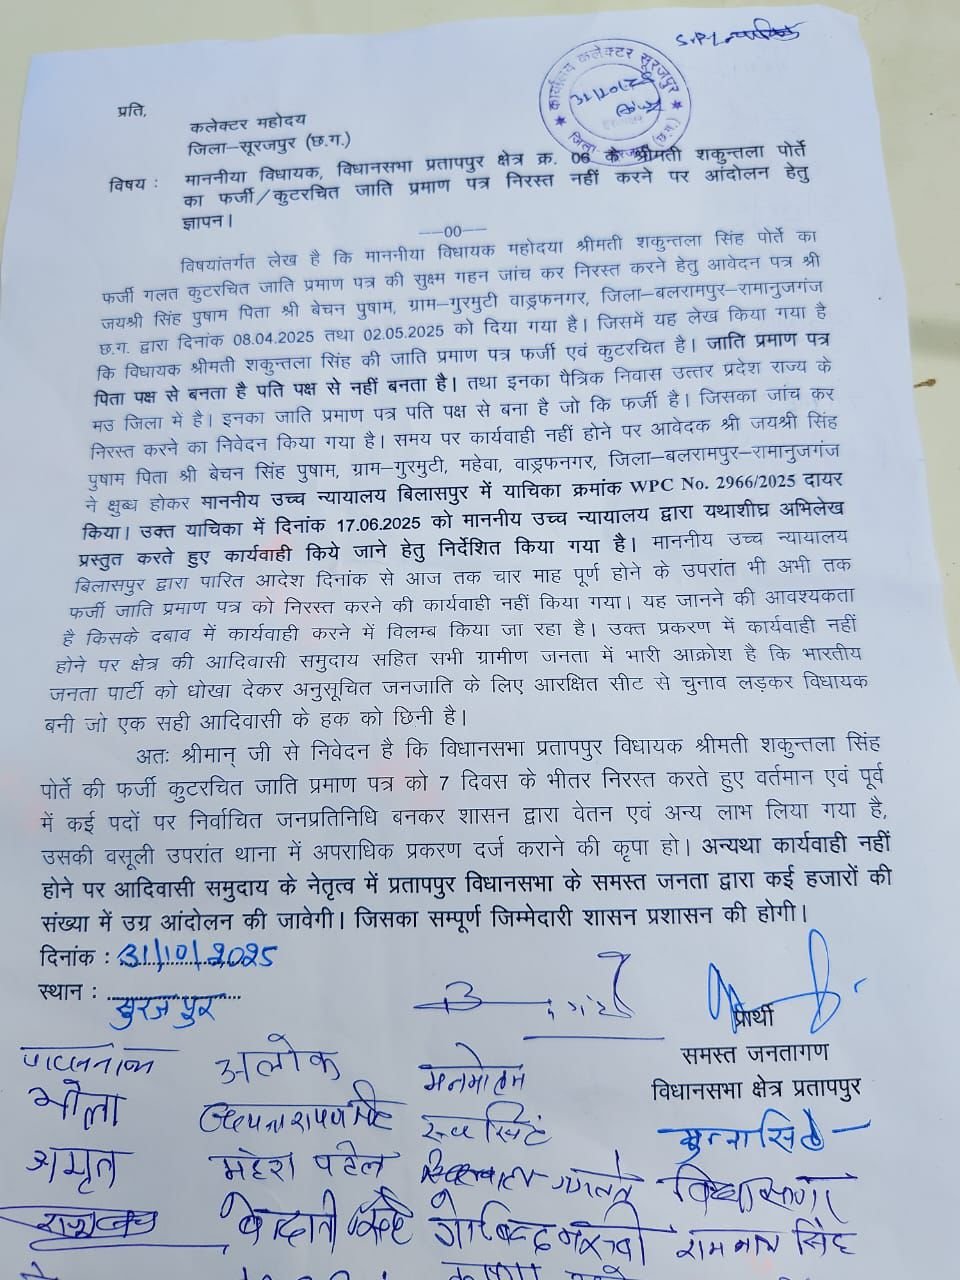 कार्यालय कलेक्टर सूरजपुर
जिला-सूरजपुर (छ.ग.)
प्रति,
कलेक्टर महोदय
जिला–सूरजपुर (छ.ग.)
विषय : माननीया विधायक, विधानसभा प्रतापपुर क्षेत्र क्र. 06 के श्रीमती शकुन्तला पोर्ते
का फर्जी/कुटरचित जाति प्रमाण पत्र निरस्त नहीं करने पर आंदोलन हेतु
ज्ञापन।
—00—
विषयांतर्गत लेख है कि माननीया विधायक महोदया श्रीमती शकुन्तला सिंह पोर्ते का
फर्जी गलत कुटरचित जाति प्रमाण पत्र की सुक्ष्म गहन जांच कर निरस्त करने हेतु आवेदन पत्र श्री
जयश्री सिंह पुषाम पिता श्री बेचन पुषाम, ग्राम–गुरमुटी वाड्रफनगर, जिला–बलरामपुर–रामानुजगंज
छ.ग. द्वारा दिनांक 08.04.2025 तथा 02.05.2025 को दिया गया है। जिसमें यह लेख किया गया है
कि विधायक श्रीमती शकुन्तला सिंह की जाति प्रमाण पत्र फर्जी एवं कुटरचित है। जाति प्रमाण पत्र
पिता पक्ष से बनता है पति पक्ष से नहीं बनता है। तथा इनका पैत्रिक निवास उत्तर प्रदेश राज्य के
मउ जिला में है। इनका जाति प्रमाण पत्र पति पक्ष से बना है जो कि फर्जी है। जिसका जांच कर
निरस्त करने का निवेदन किया गया है। समय पर कार्यवाही नहीं होने पर आवेदक श्री जयश्री सिंह
पुषाम पिता श्री बेचन सिंह पुषाम, ग्राम–गुरमुटी, महेवा, वाड्रफनगर, जिला–बलरामपुर–रामानुजगंज
ने क्षुब्ध होकर माननीय उच्च न्यायालय बिलासपुर में याचिका क्रमांक WPC No. 2966/2025 दायर
किया। उक्त याचिका में दिनांक 17.06.2025 को माननीय उच्च न्यायालय द्वारा यथाशीघ्र अभिलेख
प्रस्तुत करते हुए कार्यवाही किये जाने हेतु निर्देशित किया गया है। माननीय उच्च न्यायालय
बिलासपुर द्वारा पारित आदेश दिनांक से आज तक चार माह पूर्ण होने के उपरांत भी अभी तक
फर्जी जाति प्रमाण पत्र को निरस्त करने की कार्यवाही नहीं किया गया। यह जानने की आवश्यकता
है किसके दबाव में कार्यवाही करने में विलम्ब किया जा रहा है। उक्त प्रकरण में कार्यवाही नहीं
होने पर क्षेत्र की आदिवासी समुदाय सहित सभी ग्रामीण जनता में भारी आक्रोश है कि भारतीय
जनता पार्टी को धोखा देकर अनुसूचित जनजाति के लिए आरक्षित सीट से चुनाव लड़कर विधायक
बनी जो एक सही आदिवासी के हक को छिनी है।
अतः श्रीमान् जी से निवेदन है कि विधानसभा प्रतापपुर विधायक श्रीमती शकुन्तला सिंह
पोर्ते की फर्जी कुटरचित जाति प्रमाण पत्र को 7 दिवस के भीतर निरस्त करते हुए वर्तमान एवं पूर्व
में कई पदों पर निर्वाचित जनप्रतिनिधि बनकर शासन द्वारा वेतन एवं अन्य लाभ लिया गया है,
उसकी वसूली उपरांत थाना में अपराधिक प्रकरण दर्ज कराने की कृपा हो। अन्यथा कार्यवाही नहीं
होने पर आदिवासी समुदाय के नेतृत्व में प्रतापपुर विधानसभा के समस्त जनता द्वारा कई हजारों की
संख्या में उग्र आंदोलन की जावेगी। जिसका सम्पूर्ण जिम्मेदारी शासन प्रशासन की होगी।
दिनांक : 31/10/2025
स्थान : सुरजपुर
प्रार्थी
समस्त जनतागण
विधानसभा क्षेत्र प्रतापपुर
अलोक मनमोहन
भोला
अमृत महेश पटेल
रामनाथ सिंह